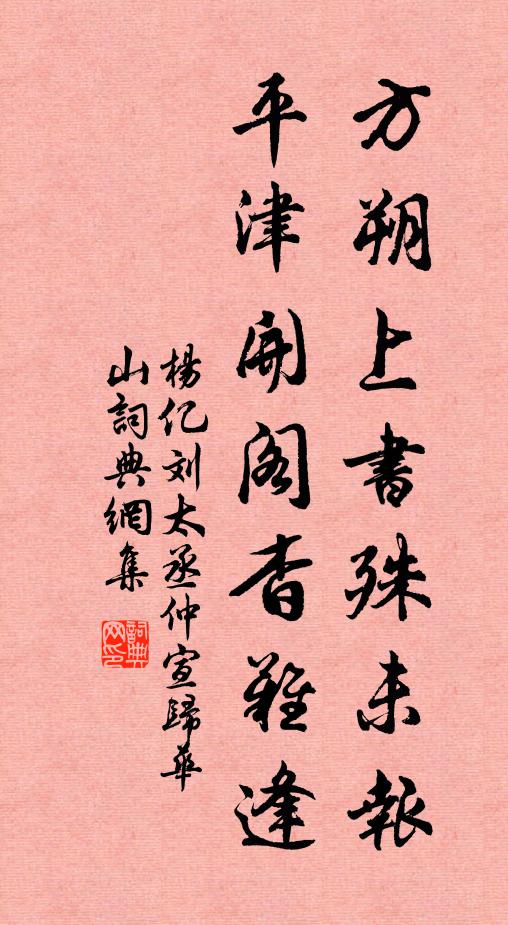 方朔上書殊未報
平津開閣杳難逢
楊亿刘太丞仲宣歸華
山詞典網集
詞典网印